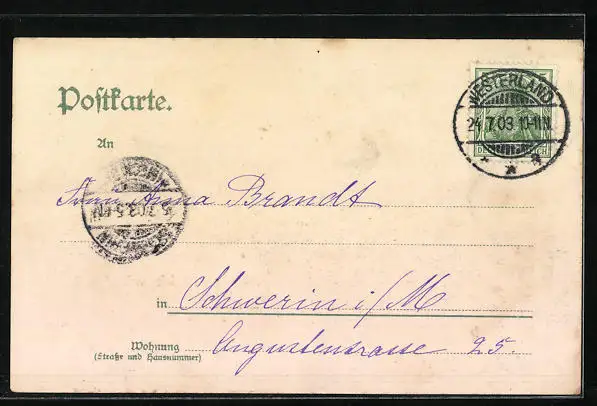 Postkarte.
WESTERLAND
24.7.03. 10-11N.
An
Frau Anna Brandt
in Schwerin i/M
Wohnung
(Straße und Hausnummer)
Augustenstrasse 25.